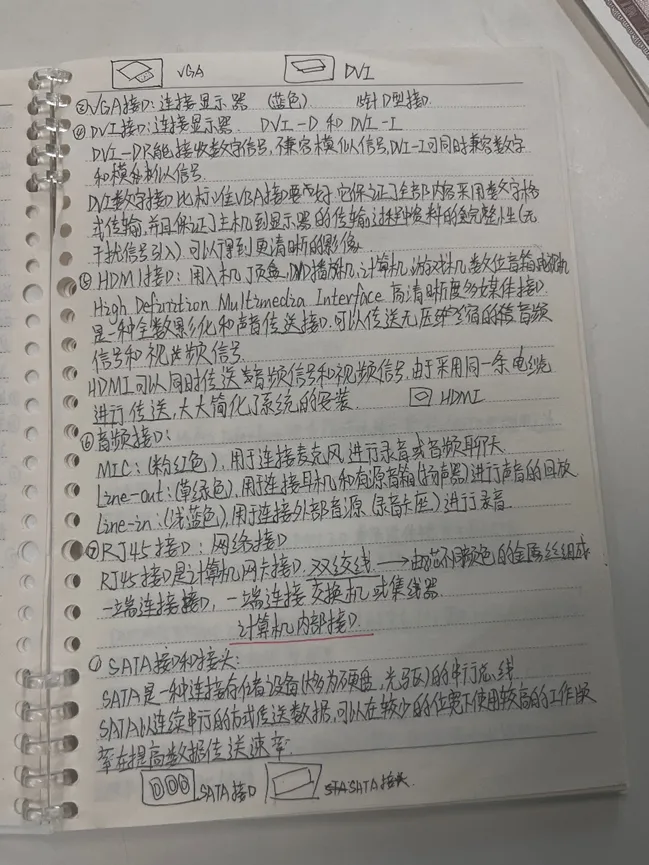 VGA DVI
③VGA接口:连接显示器 (蓝色). 15针D型接口.
④DVI接口:连接显示器. DVI-D 和 DVI-I
DVI-D只能接收数字信号,不兼容模似信号,DVI-I可同时兼容数字
和模似信号.
DVI数字接口比标准VBA接口要好.它保证了全部内容采用数字格
式传输,并且保证了主机到显示器的传输过程中资料的完整性(无
干扰信号引入)可以得到更清晰的影像.
⑤HDMI接口:用入机顶盘,DVD播放机,计算机,游戏机,数位音箱
High Definition Multimedia Interface 高清晰度多媒体接口.
是一种全数影化和声音传送接口.可以传送无压缩的音频
信号和视频信号.
HDMI可以同时传送音频信号和视频信号,由于采用同一条电缆
进行传送,大大简化了系统的安装. HDMI
⑥音频接口:
MIC:(粉红色),用于连接麦克风,进行录音或音频聊天
Line-out:(草绿色),用于连接耳机和有源音箱(扬声器)进行声音的回放
Line-in:(浅蓝色),用于连接外部音源(录音卡座)进行录音.
⑦RJ45接口:网络接口
RJ45接口是计算机网卡接口.双绞线→由不同颜色的金属丝组成
一端连接接口,一端连接交换机或集线器.
计算机内部接口.
①SATA接口和接头:
SATA是一种连接存储设备(大多为硬盘,光驱)的串行总线
SATA以连续串行的方式传送数据,可以在较少的位宽下使用较高的工作
率在提高数据传送速率.
SATA接口 SATA接头